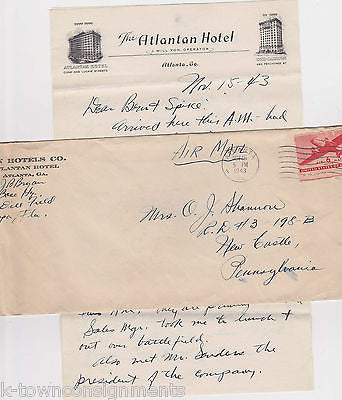 The Atlantan Hotel
J. WILL YON, OPERATOR
Atlanta, Ga.
ATLANTAN HOTEL
CONE AND LUCKIE STREETS
Nov. 15-43
Dear Bent Spike:
Arrived here this A.M. - had
N HOTELS CO.
TLANTAN HOTEL
ATLANTA, GA.
Bryan
Field
Fla.
AIR MAIL
PM
1943
Mrs. O. J. Shannon
R.D #3-198-B
New Castle,
Pennsylvania
they are
Sales Mgr. took me to lunch &
out over battlefield.
Also met Mr. Sanders the
president of the company.
k-townconsignments